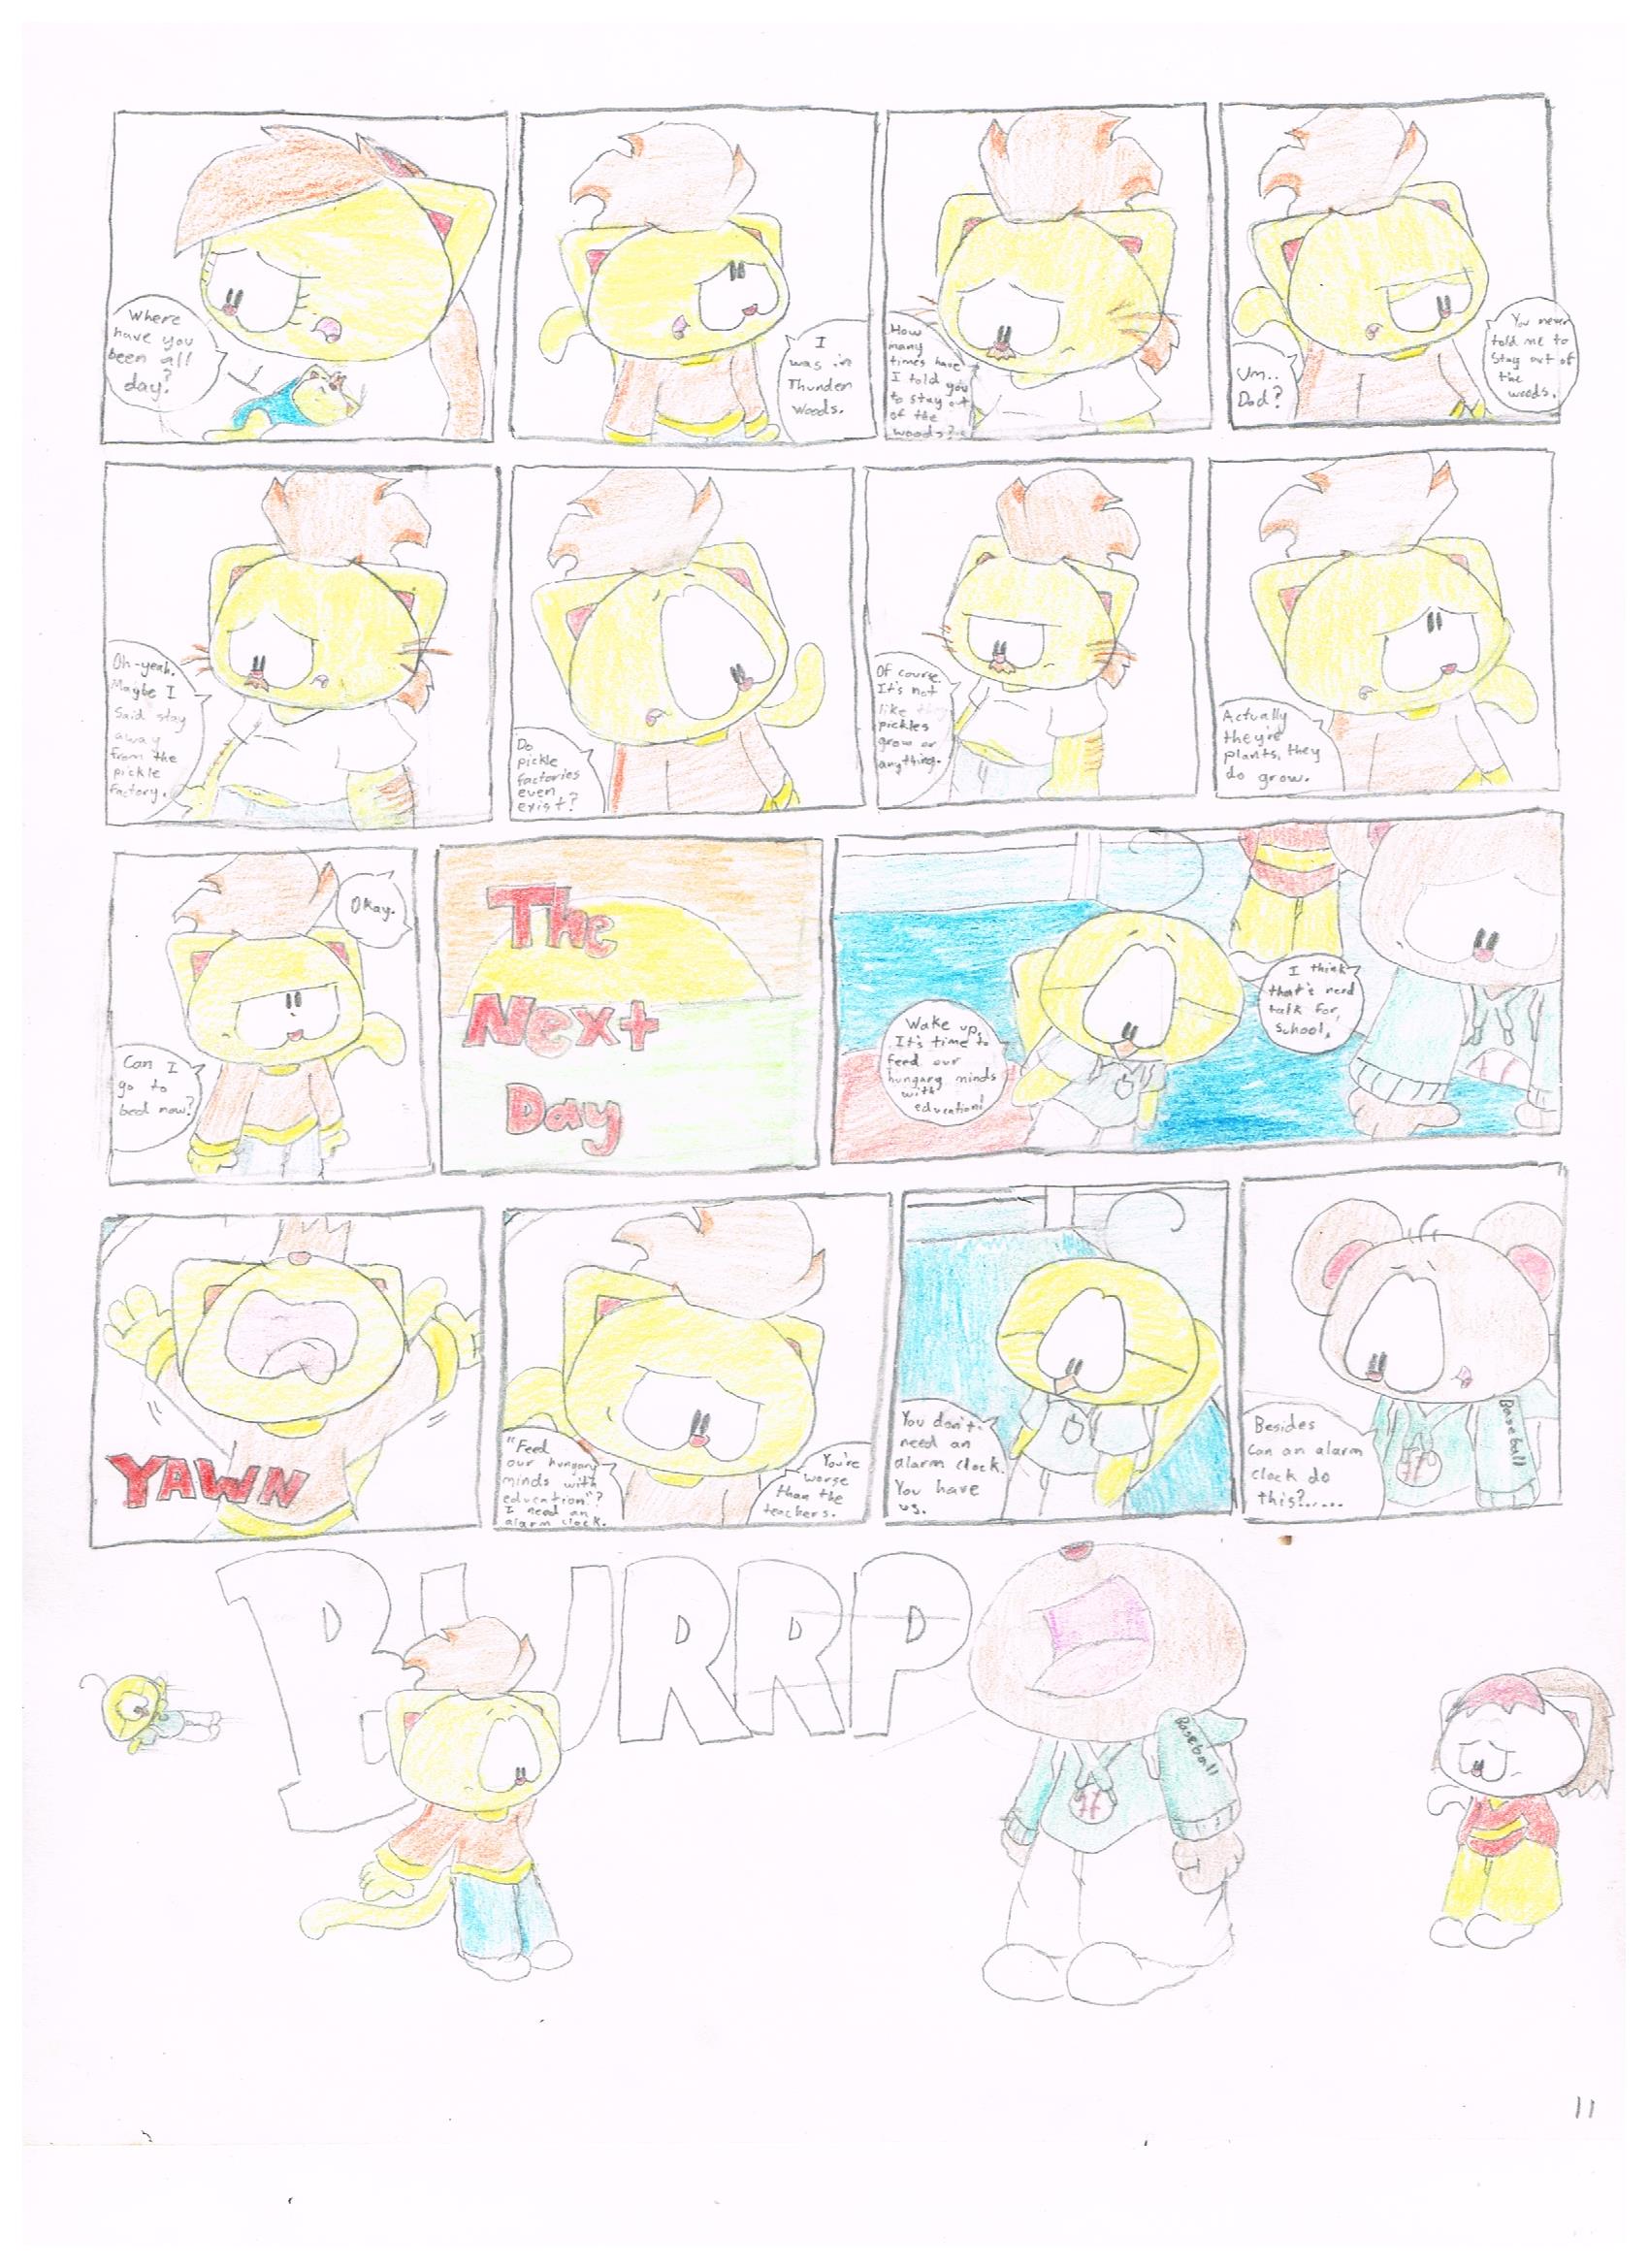 Where
have you
been all
day?
I
was in
Thunder
Woods.
How
many
times have
I told you
to stay out
of the
woods?
Um..
Dad?
You never
told me to
stay out of
the
woods.
Oh-yeah.
Maybe I
said stay
away
from the
pickle
factory.
Do
pickle
factories
even
exist?
Of course.
It's not
like
pickles
grow or
anything.
Actually
they're
plants, they
do grow.
Okay.
Can I
go to
bed now?
The
Next
Day
Wake up,
It's time to
feed our
hungary minds
with
education!
I think
that's nerd
talk for,
school.
YAWN
"Feed
our hungary
minds with
education"?
I need an
alarm clock.
You're
worse
than the
teachers.
You don't
need an
alarm clock.
You have
us.
Besides
can an alarm
clock do
this?.....
Baseball
BURRP
Baseball
11